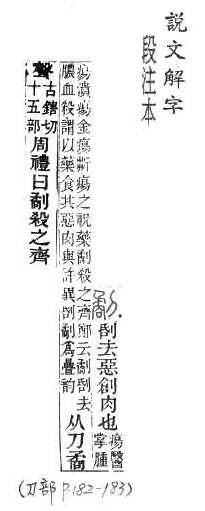 說文解字
段注本
劀 刮去惡創肉也 瘍醫
掌腫
瘍潰瘍金瘍折瘍之祝藥劀殺之齊鄭云劀刮去
膿血殺謂以藥食其惡肉與許異刮劀爲疊韵
从刀矞
聲 古鎋切
十五部
周禮曰劀殺之齊
(刀部 P.182-183)